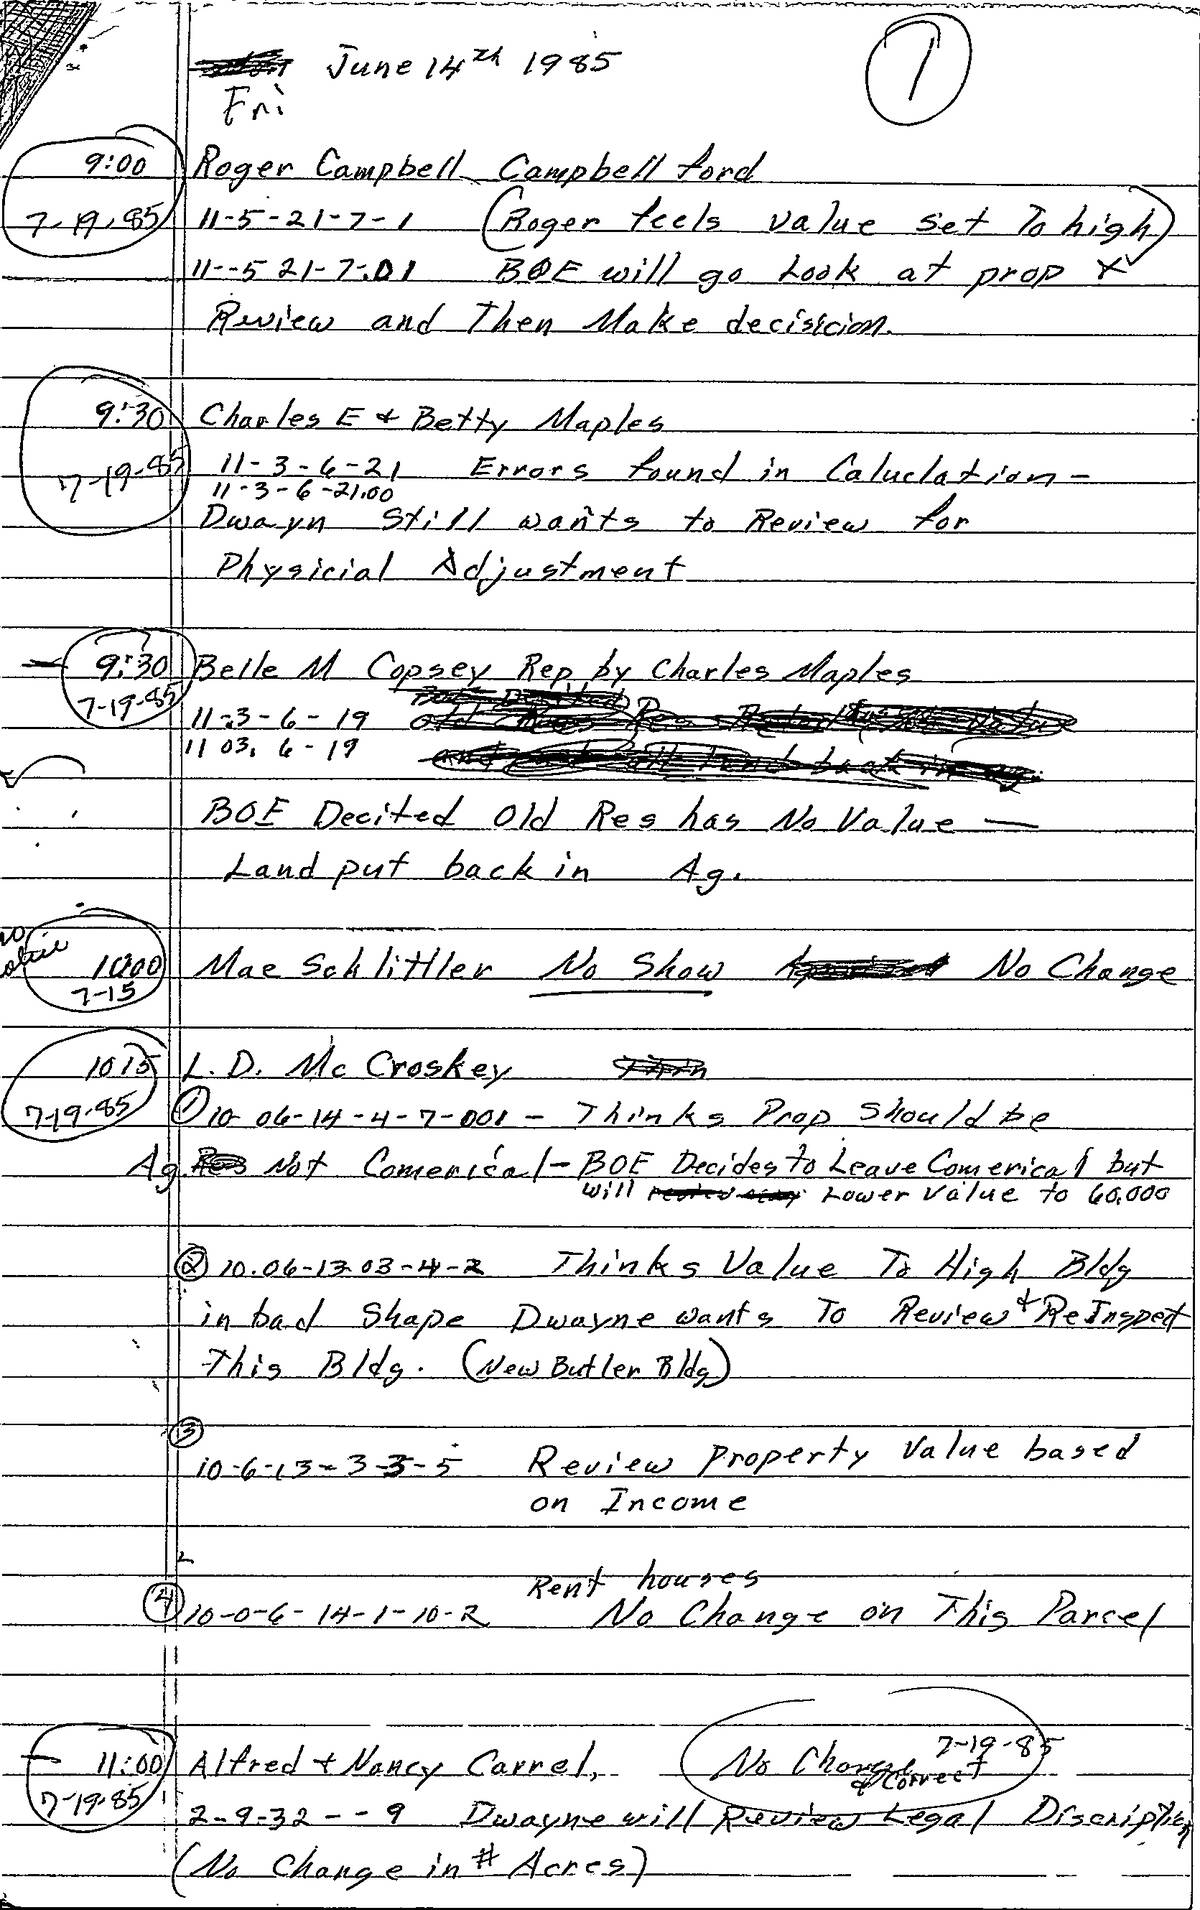 June 14th 1985
1
Fri
9:00 Roger Campbell Campbell Ford
7-19-85 11-5-21-7-1 (Roger feels value set To high)
11--5 21-7-01 BOE will go Look at prop &
Review and Then Make decisicion.
9:30 Charles E & Betty Maples
7-19-85 11-3-6-21 Errors found in Caluclation-
11-3-6-21.00
Dwayn Still wants to Review for
Physicial Adjustment
9:30 Belle M Copsey Rep by Charles Maples
7-19-85
11-3-6-19
11 03. 6-19
BOE Decited Old Res has No Value —
Land put back in Ag.
NO
10:00 Mae Schlittler No Show No Change
7-15
1015 L.D. Mc Croskey
7-19-85 ① 10-06-14-4-7-001 - Thinks Prop Should be
Ag. Not Comerical - BOE Decides to Leave Comerical but
will Lower Value to 60,000
② 10.06-13-03-4-2 Thinks Value To High Bldg
in bad Shape Dwayne wants To Review & ReInspect
This Bldg. (New Butler Bldg)
③
10-6-13-3-3-5 Review Property Value based
on Income
Rent houses
④ 10-0-6-14-1-10-2 No Change on This Parcel
7-19-85
11:00 Alfred & Nancy Carrel, No Change
& Correct
7-19-85 2-9-32--9 Dwayne will Review Legal Discription
(No Change in # Acres)